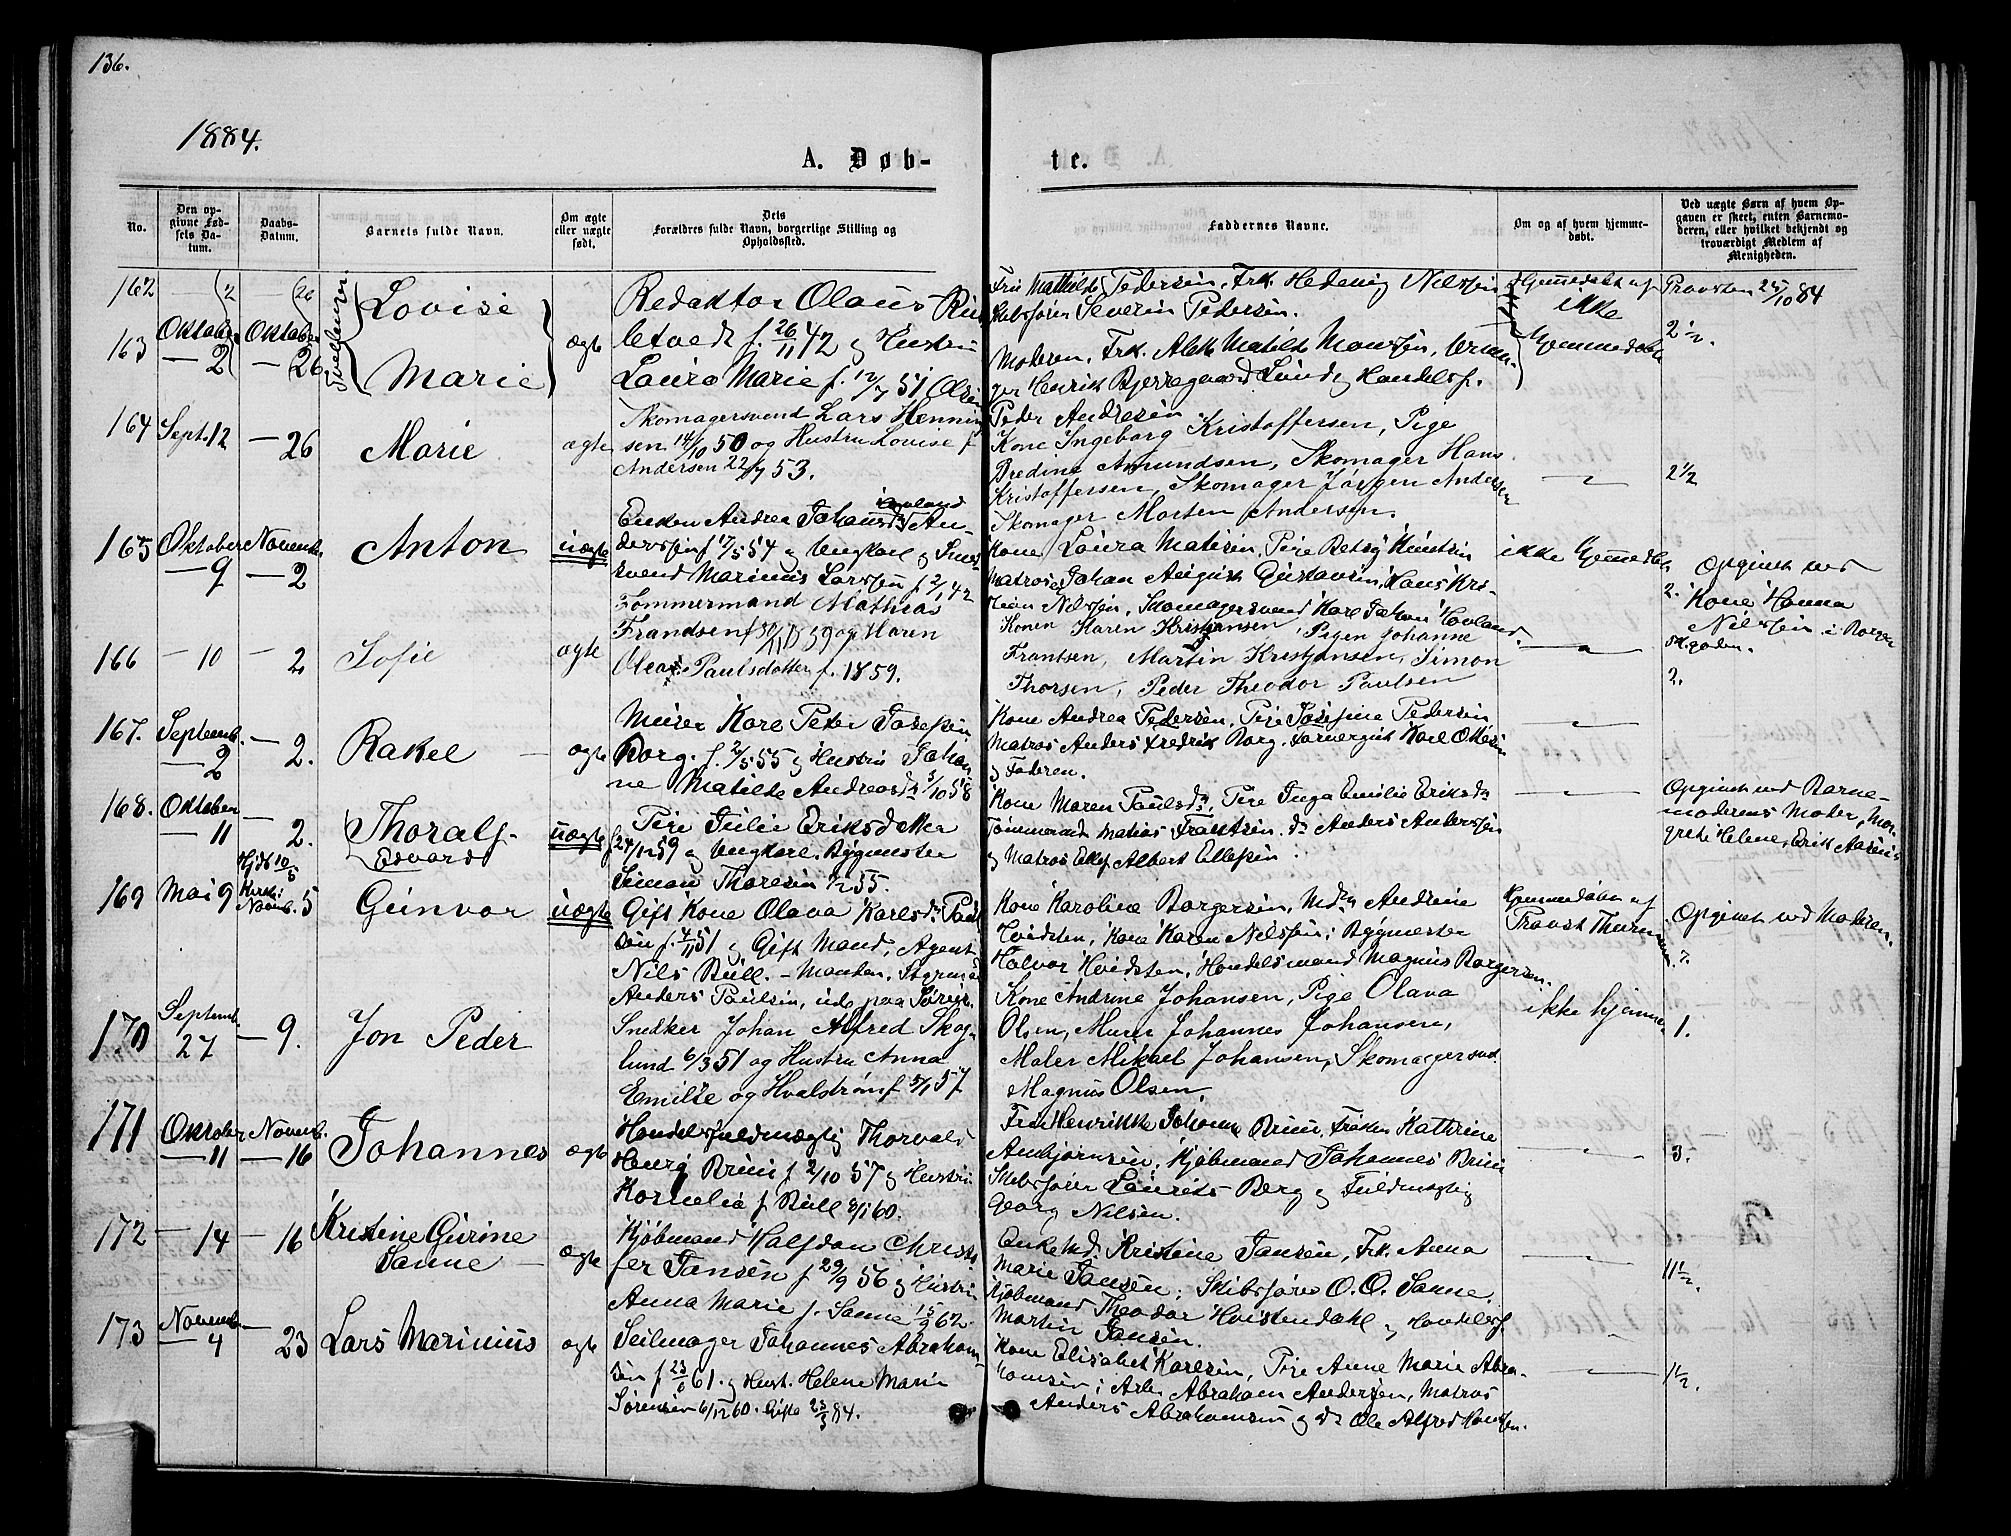 136.
1884.
A. Døb-
te.
No.
Den op-
givne Fød-
sels Da-
tum.
Daabs-
Datum.
Barnets fulde Navn.
Om ægte
eller uægte
født.
Dets
Forældres fulde Navn, borgerlige Stilling og
Opholdssted.
Faddernes Navne.
Om og af hvem hjemme-
døbt.
Ved uægte Børn af hvem Op-
gaven er skeet, enten Barnemo-
deren, eller hvilket bekjendt og
troværdigt Medlem af
Menigheden.
162 — 2 — 26 Lovise
Redaktør Olaus
Fru Mathilde Pedersen, Frk. Hedevig Nilssen
Skibsfører Severin Pedersen.
Hjemmedøbt af
Provsten 25/10 84
ikke
163 Oktober Oktober
— 2 — 26 Marie ægte
f. 26/11 42 og Hustru
Laura Marie f. 12/7 51 Olsen
Moderen, Frk. Matilde Monssen,
Henrik Bjerregaard Lund, Handelsf.
Peder Andresen
hjemmedøbt
2 1/2.
164 Sept. 12 — 26 Marie ægte
Skomagersvend Lars Hennin
sen 14/10 50 og Hustru Lovise f
Andersen 22/7 53.
Kone Ingeborg Kristoffersen, Pige
Bredine Amundsen, Skomager Hans
Kristoffersen, Skomager Jørgen Anders
Skomager Morten Andersen.
— " —
2 1/2
165 Oktober Novemb.
— 9 — 2 Anton uægte
Enken Andrea Johansd. An-
derssen f 17/5 54 og Ungkarl
svend Marinius Larssen f 2/1 42
Kone Laura Matisen, Pige Betsy Knutsen
Matros Johan August Gustavsen, Hans Kri-
stian Nilssen, Skomagersvend Karl Johan Hovland.
ikke hjemmedøbt
2.
Opgivet ved
Kone Hanna
Nilssen i Borger
gaden.
166 — 10 — 2 Sofie ægte
Tømmermand Mathias
Frandsen f 30/11 59 og Maren
Paulsdatter f. 1859.
Konen Karen Kristjansen, Pigen Johanne
Frantsen, Martin Kristjansen, Simon
Thorsen, Peder Theodor Paulsen
— " —
2.
167. Septemb.
— 2 — 2. Rakel — ægte
Murer Karl Peter Josefsen
Borg. f. 2/5 55 og Hustru Johan-
ne Matilde Andreasd. 3/10 58
Kone Andrea Pedersen, Pige Josefine Pedersen
Matros Anders Fredrik Borg, Karl Ottesen
og Faderen.
— " —
168. Oktober
— 11 — 2. Thoralf
Edvard uægte
Pige Julie Eriksdatter
f 24/12 59 og Ungkarl, Bygmester
Simon Thoresen 1/2 55.
Kone Maren Paulsd., Pige Inga Emilie Eriksd.
Tømmermd. Matias Frantsen. do Anders Anderssen
og Matros Ellef Albert Ellefsen
— " —
Opgivet ved Barne-
moderens Moder, Mar-
grete Helene, Erik
169 Mai 9 Hjdt 10/5
Kirke:
Novemb. 5 Gunvor uægte
Gift Kone Olava Karlsd. Paul
sen f. 4/11 51 og Gift Mand, Agent
Nils Bull. — Manden, Styrmd
Anders Paulsen, ude paa Sørejse.
Kone Karoline Borgersen, Md. Andrine
Hvidsten, Kone Karen Nilssen; Bygmester
Halvor Hvidsten, Handelsmand Magnus Borgersen.
Hjemmedøbt af
Provst Thurmann
Opgivet ved Moderen.
170 Septemb.
27 — 9. Jon Peder
Snedker Johan Alfred Skog-
lund 6/3 51 og Hustru Anna
Emilie og Hvalstrøm f 5/1 57
Kone Andrine Johansen, Pige Olava
Olsen, Murer Johannes Johansen,
Maler Mikael Johansen, Skomagersvd.
Magnus Olsen,
ikke hjemme
1.
171 Oktober Novemb.
— 11 — 16 Johannes ægte
Handelsfuldmægtig Thorvald
Henry Bruu f 2/10 57 og Hustru
Kornelia f Bull 8/1 60.
Fru Henrikke Johanne Bruu, Frøken Kathrine
Anbjørnsen, Kjøbmand Johannes Bruu
Skibsfører Laurits Berg og Fuldmægtig
Georg Nilsen.
— " —
3.
172 — 14 — 16 Kristine Gurine
Sanne — ægte
Kjøbmand Halfdan Christo
fer Jansen f 29/9 56 og Hustru
Anna Marie f. Sanne 15/3 62.
Kristine Jansen, Frk. Anna
Marie Jansen; Skibsfører O. O. Sanne.
Kjøbmand Theodor Hvistendahl og Handelsf.
Martin Jansen.
— " —
11 1/2.
173 Novemb. —
— 4 23 Lars Marinius ægte
Seilmager Johannes Abraham-
sen f 23/6 61. og Hust. Helene Marie
Sørensen 6/12 60. Gifte 23/3 84.
Kone Elisabet Karlsen, Pige Anne Marie Abra-
hamsen; Arb. Abraham Andersen, Matros
Anders Abrahamsen og do Ole Alfred Hanssen.
— " —
1 1/2.